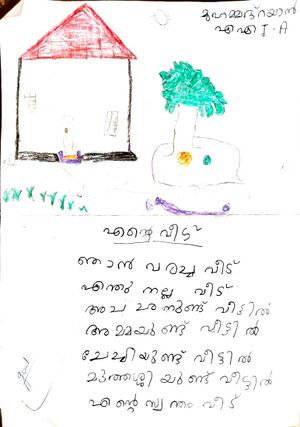 മുഹമ്മദ് റയാൻ
I-A
എന്റെ വീട്
ഞാൻ വരച്ച വീട്
എന്തു നല്ല വീട്
അച്ഛനുണ്ട് വീട്ടിൽ
അമ്മയുണ്ട് വീട്ടിൽ
ചേച്ചിയുണ്ട് വീട്ടിൽ
മുത്തശ്ശിയുണ്ട് വീട്ടിൽ
എന്റെ സ്വന്തം വീട്